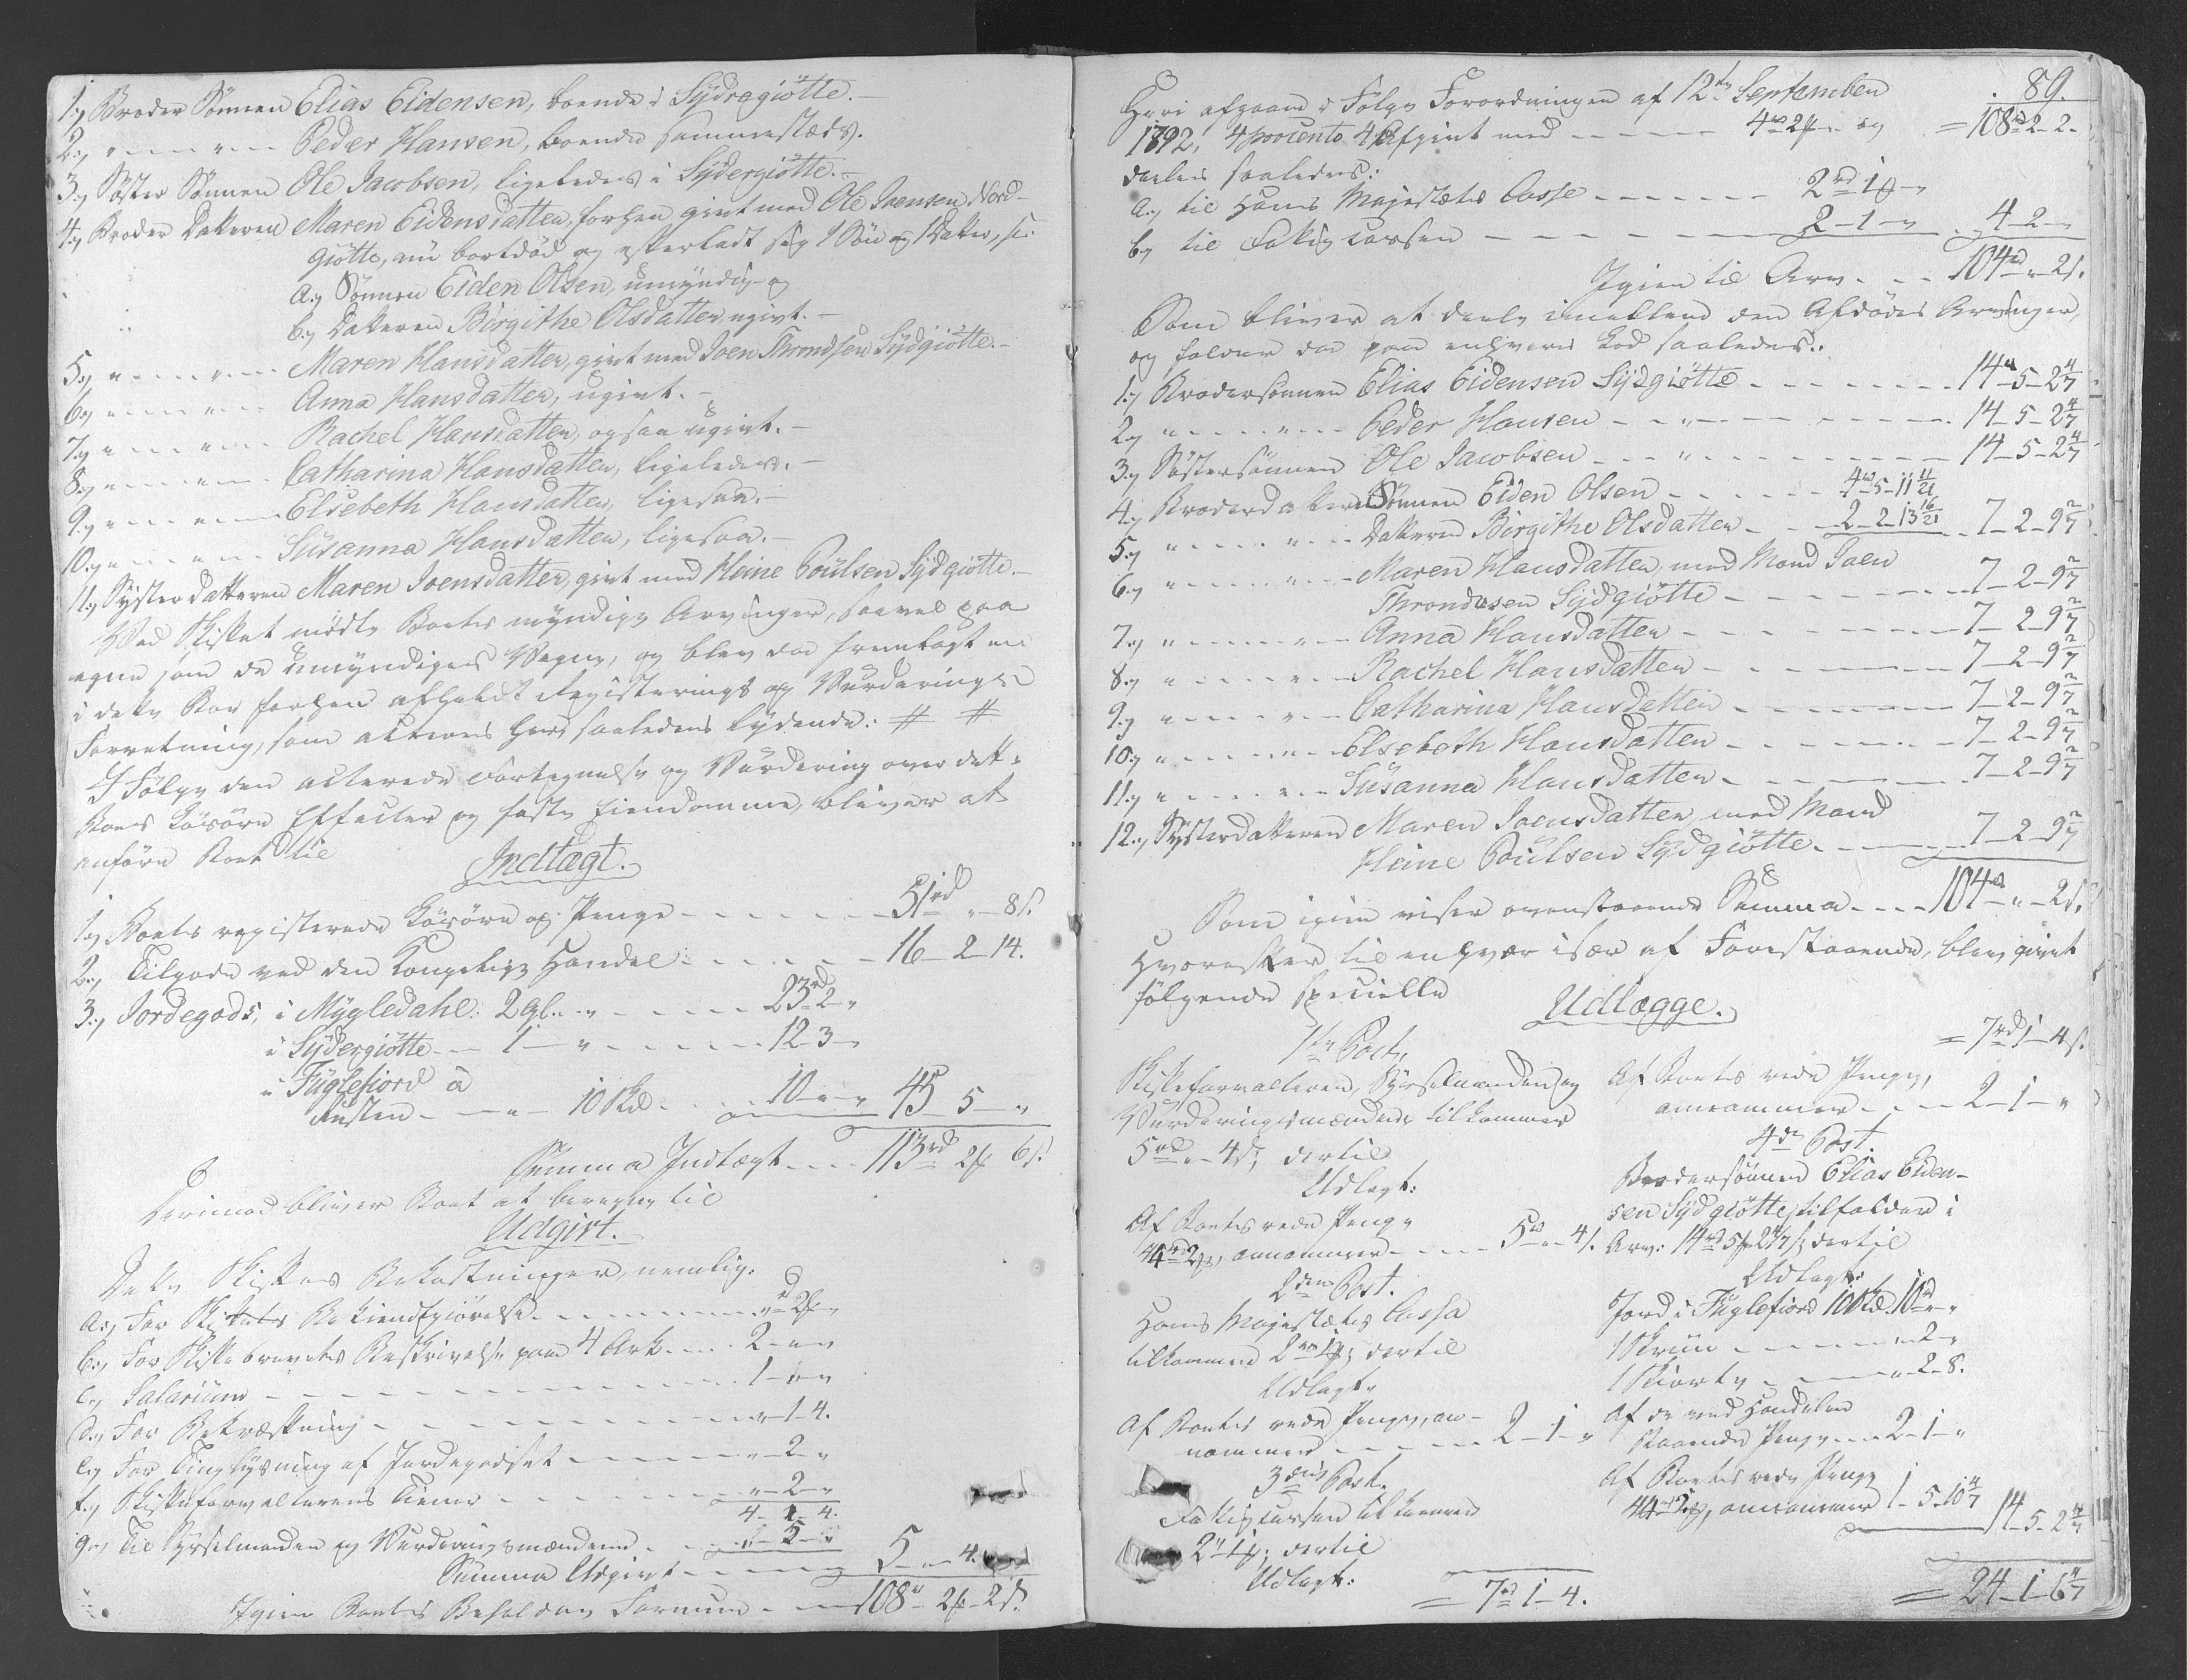 1.) Broder Sönnen Elias Eidensen, boende i Sydregiøtte.-
2.) " - - - " - - Peder Hansen, boende sammestæds.
3.) Søster Sønnen Ole Jacobsen, ligeledes i Sydergiøtte.-
4.) Broder Datteren Maren Eidensdatter, forhen givt med Ole Joensen Nord-
giøtte, nu bortdød og efterladt sig 1 Søn og 1 Datter, s:
a.) Sønnen Eiden Olsen, umyndig og
b.) Datteren Birgithe Olsdatter, ugivt.-
5.) " - - - " - - Maren Hansdatter, givt med Joen Throndsen Sydgiøtte.-
6.) " - - - " - - Anna Hansdatter, ugivt.-
7.) " - - - " - - Rachel Hansdatter, ogsaa ugivt.-
8.) " - - - " - - Catharina Hansdatter, ligeledes.-
9.) " - - - " - - Elsebeth Hansdatter, ligesaa.-
10.) " - - - " - - Susanna Hansdatter, ligesaa.-
11.) Syster Datteren Maren Joensdatter, givt med Heine Poulsen Sydgiøtte.-
Ved Skiftet mødte Boets myndige Arvinger, saavel paa
egne som de umyndiges Vegne, og blev da fremlagt en
i dette Boe forhen afholdt Registerings og Vurderings
Forretning, som acteres her saaledes lydende: # #
I Følge den acterede Fortegnelse og Vurdering over dette
Boes Løsøre Effecter og faste Eiendomme, bliver at
anføre Boet til
Indtægt.
1.) Boets registerede Løsøre og Penge - - - - 51rd " - 8 s.
2.) Tilgode ved den Kongelige Handel - - - - 16 - 2 - 14.
3.) Jordegods, i Mygledahl: 2 gl. " - - - - 23rd 2 - "
i Sydergiøtte - - 1 - " - - - - 12 - 3 - "
i Fuglefiord à
Rusten - - " - 10 Skd. - - 10 - " - " 45 - 5 - "
Summa Indtægt - - - 113rd 2 6 s.
Derimod bliver Boet at beregne til
Udgivt.
Dette Skiftes Bekostninger, nemlig:
a.) For Skiftets Bekiendtgiørelse - - - - " 2 - "
b.) For Skiftebrevets Beskrivelse paa 4 Ark - - 2 - " - "
c.) Salarium - - - - 1 - " - "
d.) For Bekræftning - - - - " - 1 - 4.
e.) For Tinglysning af Jordegodset - - - - " - 2 - "
f.) Skifteforvalterens Tiener - - - - " - 2 - "
4 - 1 - 4.
g.) Til Sysselmanden og Vurderingsmændene - - " - 5 - " 5 - " - 4.
Summa Udgivt
Igien Boets Beholdne Formue - - 108 - 2 - 2 s.
89.
Heri afgaaer i Følge Forordningen af 12te September
1792, 4 procento Afgivt med - - - 4rd 2 - " og = 108rd 2 - 2.
deeles saaledes:
a.) til Hans Majestæts Casse - - - - 2rd 1 - "
b.) til Fattigcassen - - - - 2 - 1 - " 4 - 2 - "
Igien til Arv - - - 104rd " 2 s.
Som bliver at deele imellem den Afdødes Arvinger,
og falder da paa enhvers Lod saaledes:
1.) Brodersønnen Elias Eidensen Sydgiøtte - - - - 14rd 5 - 2 4/7
2.) " - - - " - - Peder Hansen - - " - - - 14 - 5 - 2 4/7
3.) Søstersønnen Ole Jacobsen - - " - - - 14 - 5 - 2 4/7
4.) Broderdatteren Sønnen Eiden Olsen - - - - 4rd 5 - 11 11/21
5.) " - - - " - - Datteren Birgithe Olsdatter - - 2 - 2 - 13 16/21 7 - 2 - 9 2/7
6.) " - - - " - - Maren Hansdatter med Mand Joen
Throndesen Sydgiøtte - - - - 7 - 2 - 9 2/7
7.) " - - - " - - Anna Hansdatter - - - - 7 - 2 - 9 2/7
8.) " - - - " - - Rachel Hansdatter - - - - 7 - 2 - 9 2/7
9.) " - - - " - - Catharina Hansdatter - - - - 7 - 2 - 9 2/7
10.) " - - - " - - Elsebeth Hansdatter - - - - 7 - 2 - 9 2/7
11.) " - - - " - - Susanna Hansdatter - - - - 7 - 2 - 9 2/7
12.) Systerdatteren Maren Joensdatter med Mand
Heine Poulsen Sydgiøtte - - - 7 - 2 - 9 2/7
Som igien viser ovenstaaende Summa - - - 104rd " - 2 s.
Hvorefter til enhver især af Forestaaende, blev givet
følgende specielle
Udlægge.
1ste Post.
Skifteforvalteren, Sysselmanden og
Vurderingsmændene tilkommer
5rd " 4 s; dertil
Udlagt:
Af Boets rede Penge
44rd 2, annammer - - - 5rd " - 4 s.
2den Post.
Hans Majestæts Cassa
tilkommer 2rd 1; dertil
Udlagt
Af Boets rede Penge, an-
nammer - - - - 2 - 1 - "
3die Post.
Fattigcassen tilkommer
2rd 1; dertil
Udlagt:
= 7rd 1 - 4.
= 7rd 1 - 4 s.
Af Boets rede Penge,
annammer - - - 2 - 1 - "
4de Post.
Brodersønnen Elias Eiden-
sen Sydgiøtte, tilfalder i
Arv: 14rd 5 2 4/7 s; dertil
Udlagt:
Jord i Fuglefiord 10 Skd. 10rd " - "
1 Skriin - - - - " - 2 - "
1 Skiorte - - - - " - 2 - 8.
Af de ved Handelen
staaende Penge - - - 2 - 1 - "
Af Boets rede Penge
44rd 2, annammer 1 - 5 - 10 4/7 14 - 5 - 2 4/7
= 24 - 1 - 6 4/7